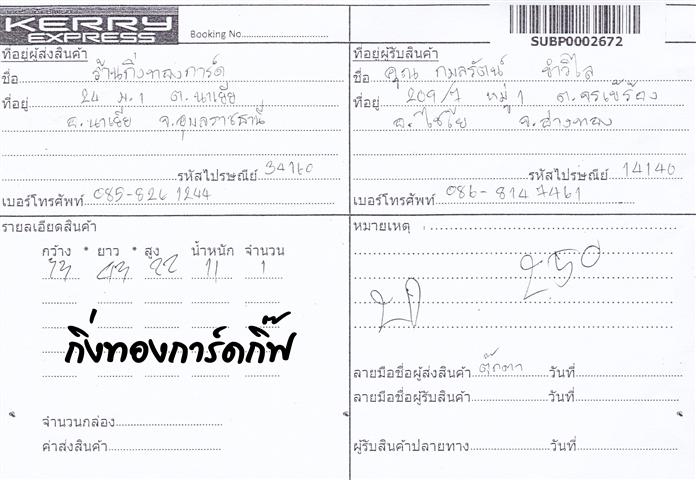 KERRY
EXPRESS
Booking No.
SUBP0002672
ที่อยู่ผู้ส่งสินค้า
ชื่อ ร้านกิ่งทองการ์ด
ที่อยู่ 24 ม.1 ต.นาเยีย
อ.นาเยีย จ.อุบลราชธานี
รหัสไปรษณีย์ 34160
เบอร์โทรศัพท์ 085-826 1244
ที่อยู่ผู้รับสินค้า
ชื่อ คุณ กมลรัตน์ ขำวิไล
ที่อยู่ 209/7 หมู่ 1
อ.ไชโย จ.อ่างทอง
รหัสไปรษณีย์ 14140
เบอร์โทรศัพท์ 086-814 7461
รายละเอียดสินค้า
กว้าง * ยาว * สูง น้ำหนัก จำนวน
73 43 22 11 1
กิ่งทองการ์ดกิ๊ฟ
จำนวนกล่อง
ค่าส่งสินค้า
หมายเหตุ
250
ลายมือชื่อผู้ส่งสินค้า ตุ๊กตา วันที่
ลายมือชื่อผู้รับสินค้า วันที่
ผู้รับสินค้าปลายทาง วันที่